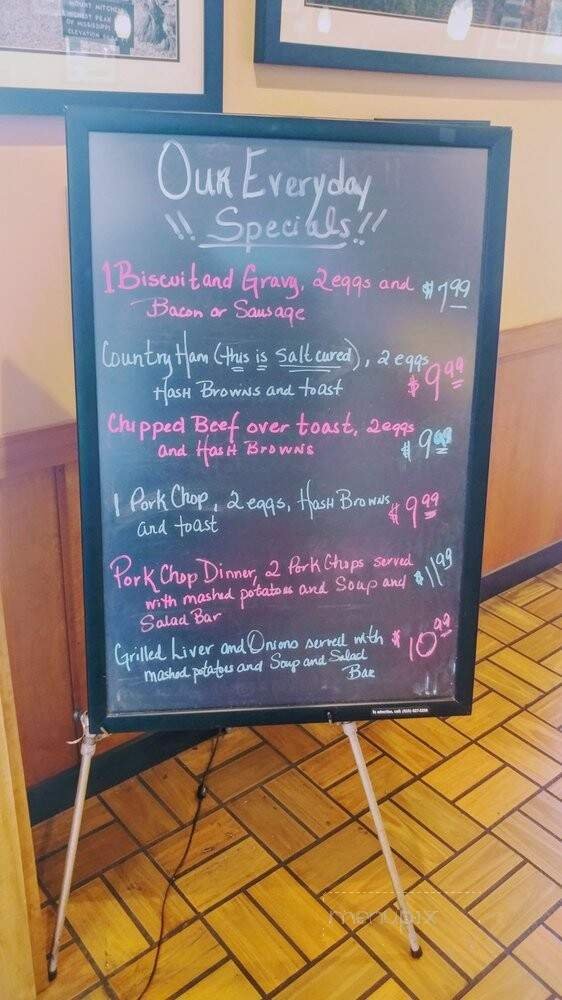 MOUNT MITCHELL
HIGHEST PEAK
OF MISSISSIPPI
ELEVATION
Our Everyday
!! Specials !!
1 Biscuit and Gravy, 2 eggs and $7.99
Bacon or Sausage
Country Ham (this is salt cured), 2 eggs
Hash Browns and toast $9.99
Chipped Beef over toast, 2 eggs
and Hash Browns
1 Pork Chop, 2 eggs, Hash Browns $9.99
and toast
Pork Chop Dinner, 2 Pork Chops served $11.99
with mashed potatoes and Soup and
Salad Bar
Grilled Liver and Onions served with $10.99
mashed potatoes and Soup and Salad
Bar
menupix